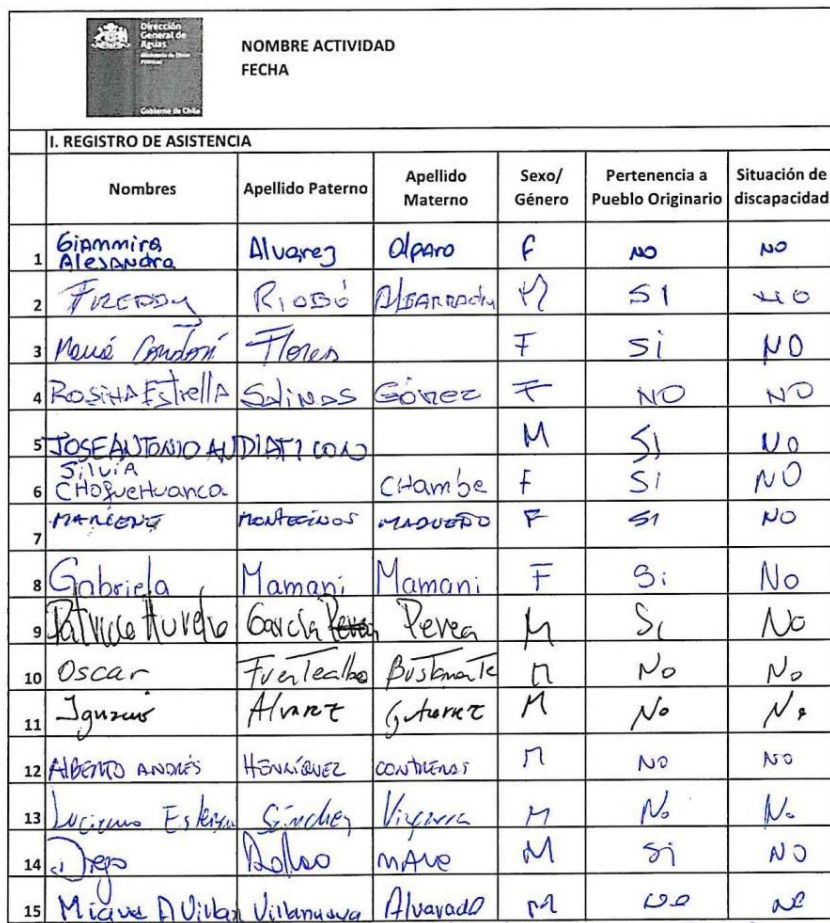 Dirección
General de
Aguas
Gobierno de Chile
NOMBRE ACTIVIDAD
FECHA
I. REGISTRO DE ASISTENCIA
Nombres Apellido Paterno Apellido Materno Sexo/ Género Pertenencia a Pueblo Originario Situación de discapacidad
1 Giammira Alesandra Alvarez F NO NO
2 FREDDY RIOBÓ M SI NO
3 Flores F Si NO
4 ROSINA EstrellA SaliNas Gómez F NO NO
5 JOSE ANTONIO M SI No
6 SilviA CHoqueHuanca CHambe F SI NO
7 MONTECINOS F SI NO
8 Gabriela Mamani Mamani F Si No
9 García Perea M Si No
10 Oscar Fuentealba Bustamante M No No
11 Ignacio Alvarez Gutierrez M No No
12 ALBERTO ANDRÉS HENRÍQUEZ CONTRERAS M NO NO
13 Luciano Esteban Sánchez M No No
14 Diego M Si NO
15 Villanueva Alvarado M NO NO